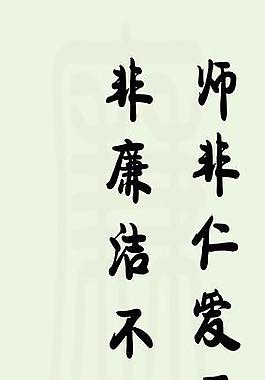 师非仁爱
非廉洁不